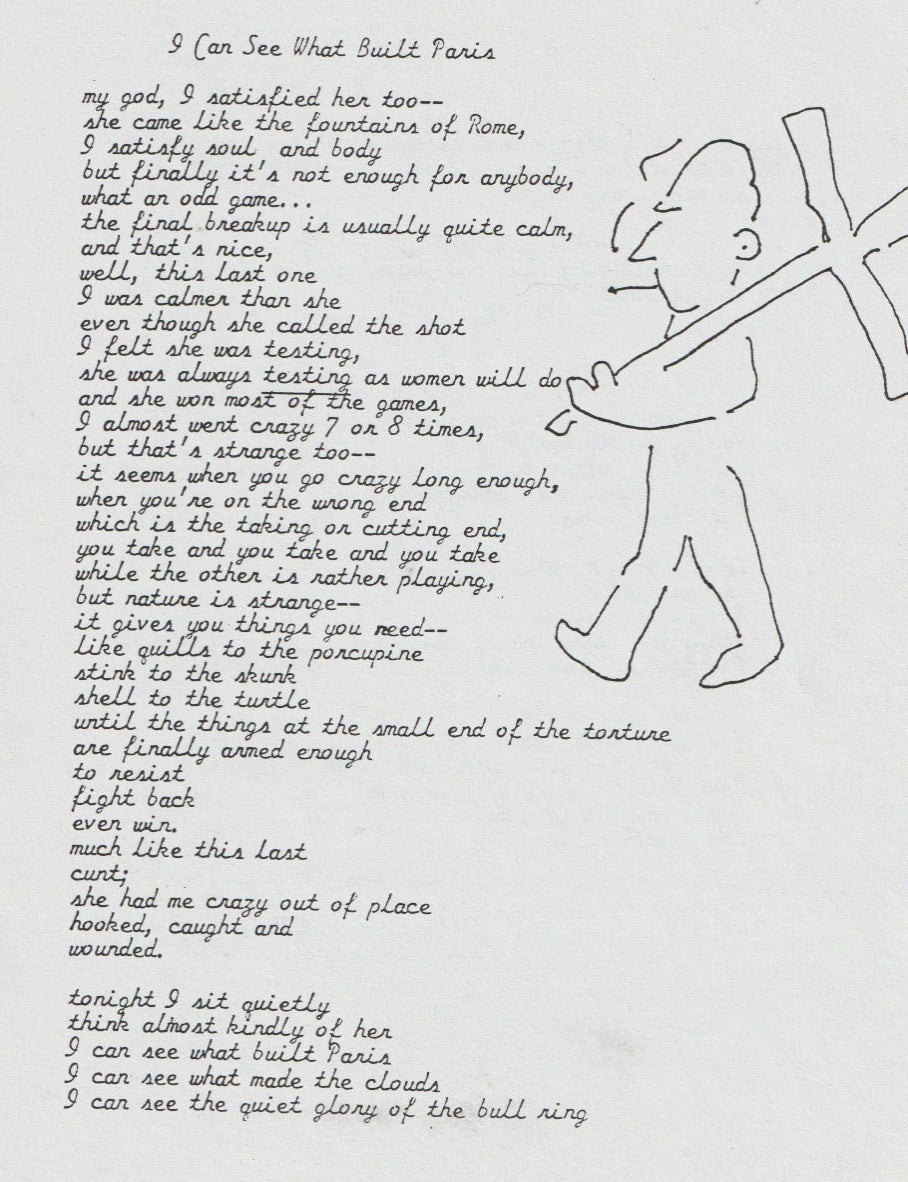 I Can See What Built Paris
my god, I satisfied her too--
she came like the fountains of Rome,
I satisfy soul and body
but finally it's not enough for anybody,
what an odd game...
the final breakup is usually quite calm,
and that's nice,
well, this last one
I was calmer than she
even though she called the shot
I felt she was testing,
she was always testing as women will do
and she won most of the games,
I almost went crazy 7 or 8 times,
but that's strange too--
it seems when you go crazy long enough,
when you're on the wrong end
which is the taking or cutting end,
you take and you take and you take
while the other is rather playing,
but nature is strange--
it gives you things you need--
like quills to the porcupine
stink to the skunk
shell to the turtle
until the things at the small end of the torture
are finally armed enough
to resist
fight back
even win.
much like this last
cunt;
she had me crazy out of place
hooked, caught and
wounded.
tonight I sit quietly
think almost kindly of her
I can see what built Paris
I can see what made the clouds
I can see the quiet glory of the bull ring